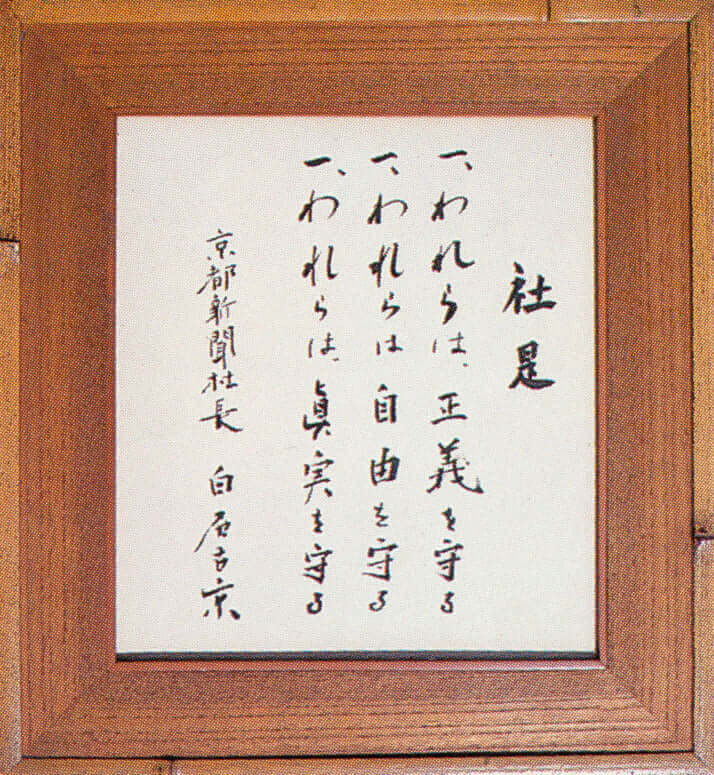 社是
一、われらは、正義を守る
一、われらは自由を守る
一、われらは、眞実を守る
京都新聞社長 白石古京